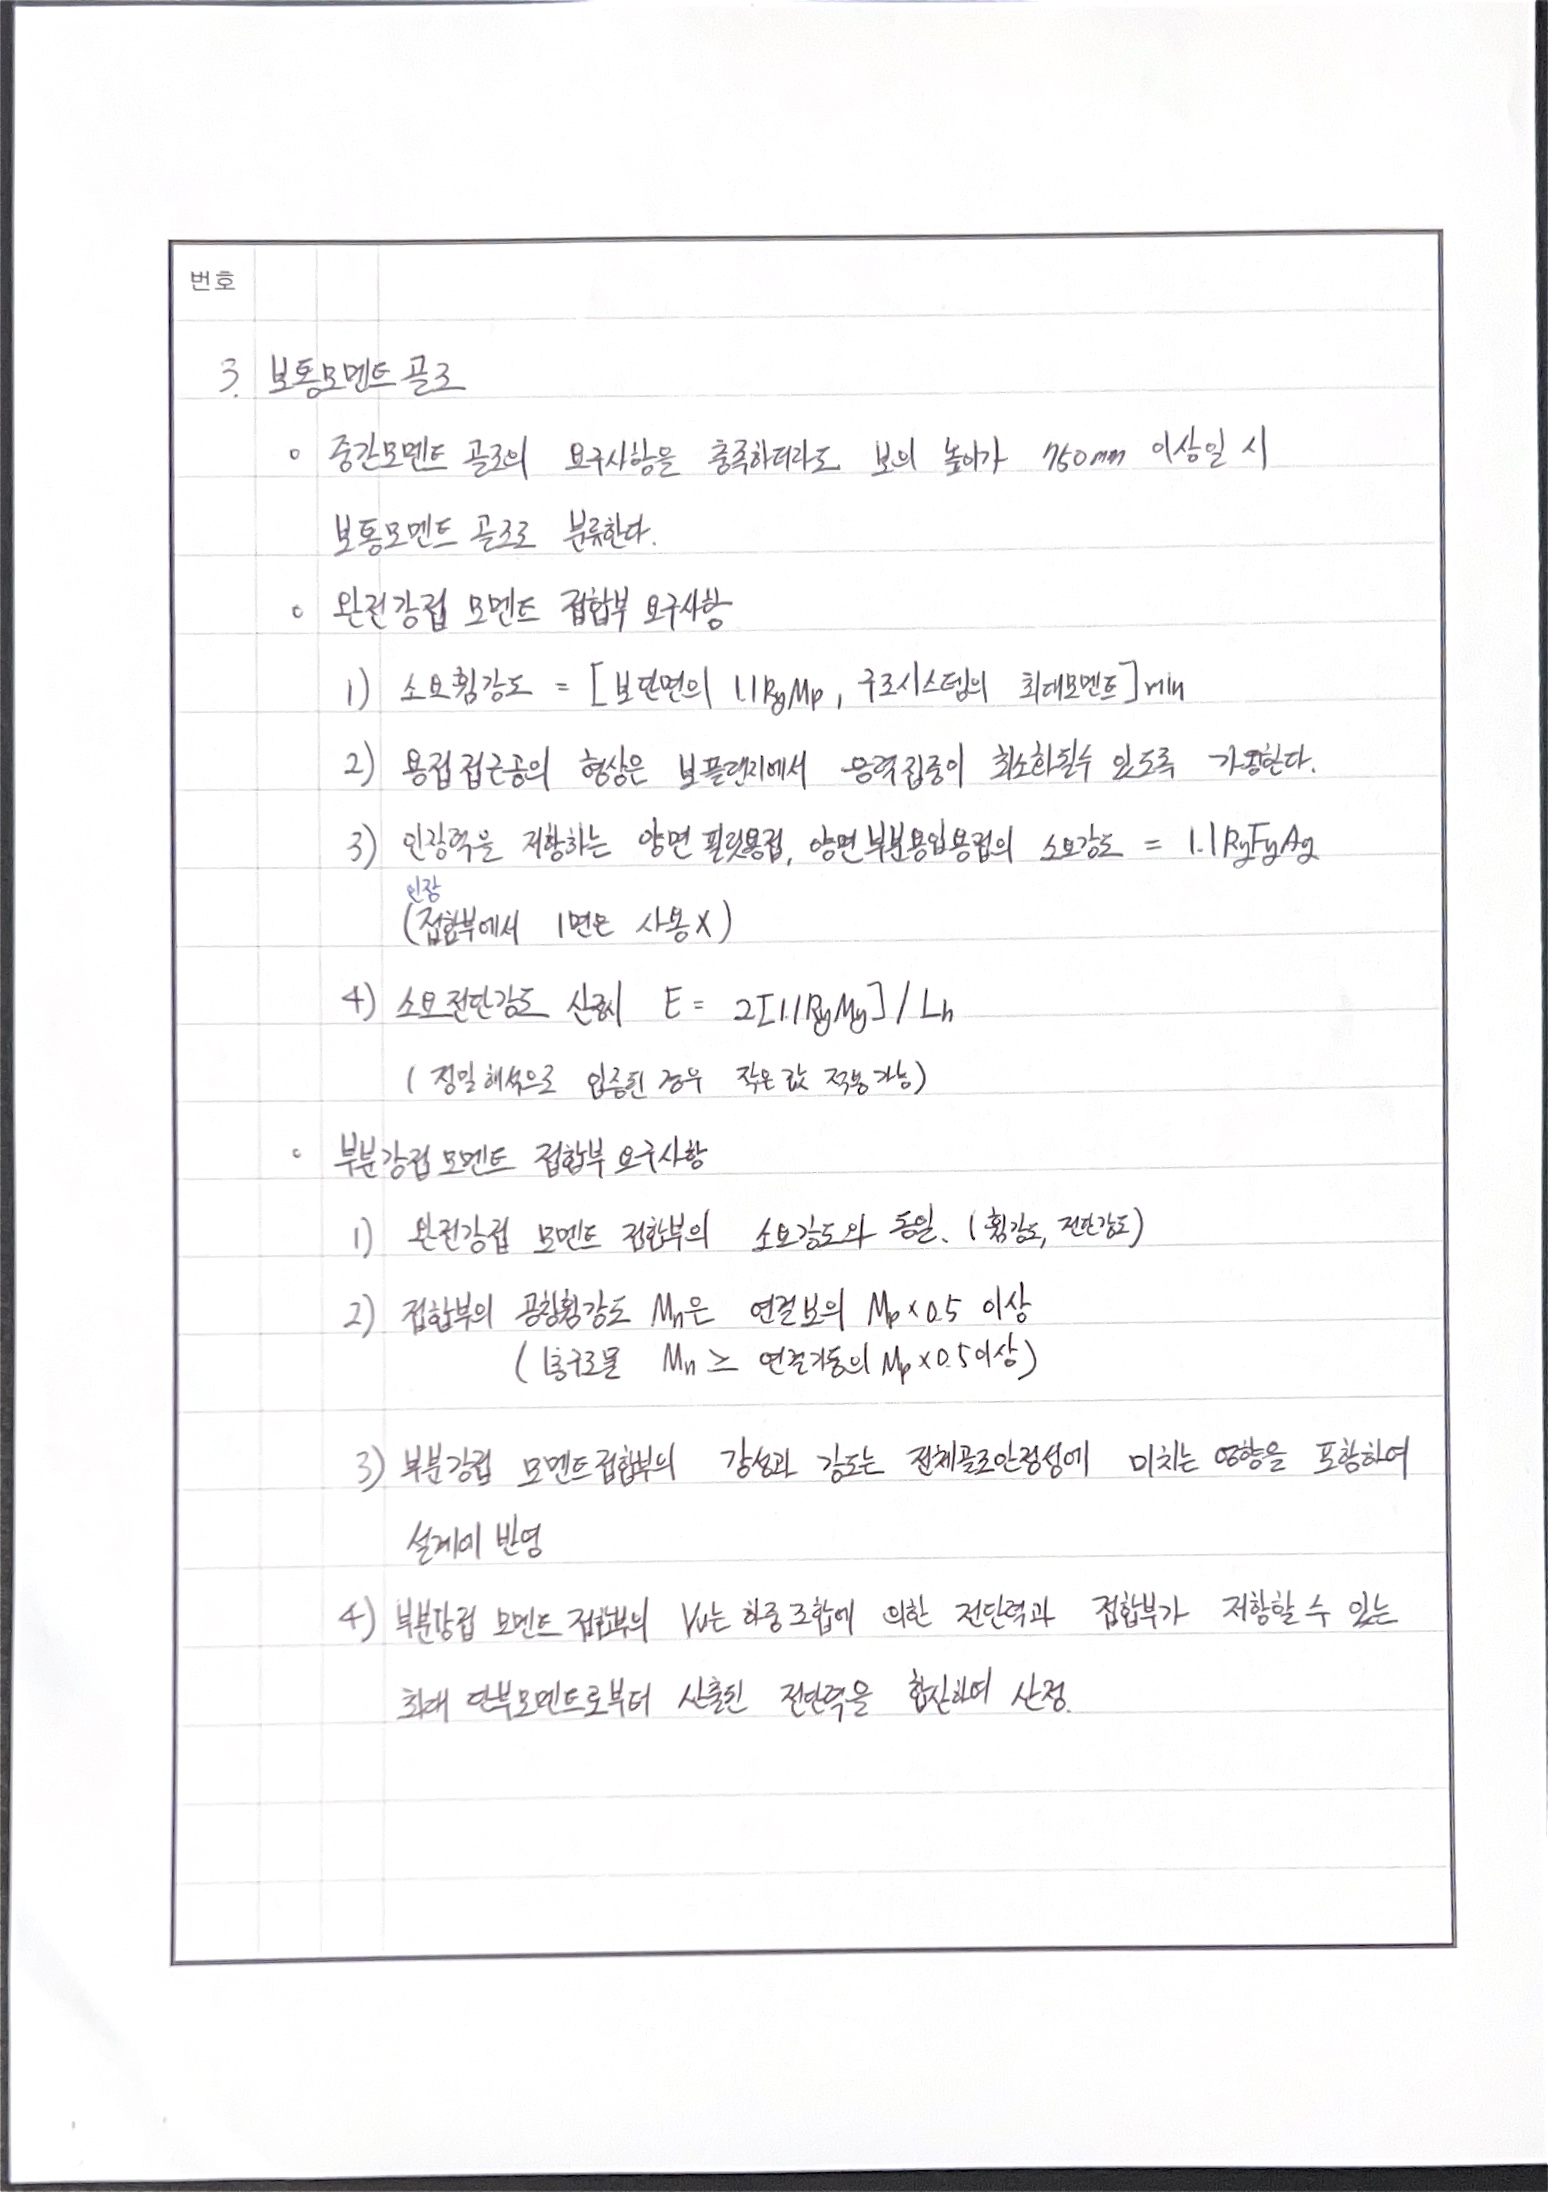 번호
3. 보통모멘트 골조
◦ 중간모멘트 골조의 요구사항을 충족하더라도 보의 높이가 750mm 이상일 시
보통모멘트 골조로 분류한다.
◦ 완전강접 모멘트 접합부 요구사항
1) 소요휨강도 = [보단면의 1.1RyMp, 구조시스템의 최대모멘트]min
2) 용접접근공의 형상은 보플랜지에서 응력집중이 최소화될수 있도록 가공한다.
3) 인장력을 저항하는 양면 필릿용접, 양면부분용입용접의 소요강도 = 1.1RyFyAg
인장
(접합부에서 1면은 사용X)
4) 소요전단강도 산정시 E = 2[1.1RyMy]/Lh
(정밀해석으로 입증된 경우 작은 값 적용가능)
◦ 부분강접 모멘트 접합부 요구사항
1) 완전강접 모멘트 접합부의 소요강도와 동일. (휨강도, 전단강도)
2) 접합부의 공칭휨강도 Mn은 연결보의 Mp×0.5 이상
(1층구조물 Mn ≥ 연결기둥의 Mp×0.5이상)
3) 부분강접 모멘트접합부의 강성과 강도는 전체골조안정성에 미치는 영향을 포함하여
설계에 반영
4) 부분강접 모멘트 접합부의 Vu는 하중조합에 의한 전단력과 접합부가 저항할 수 있는
최대 단부모멘트로부터 산출된 전단력을 합산하여 산정.